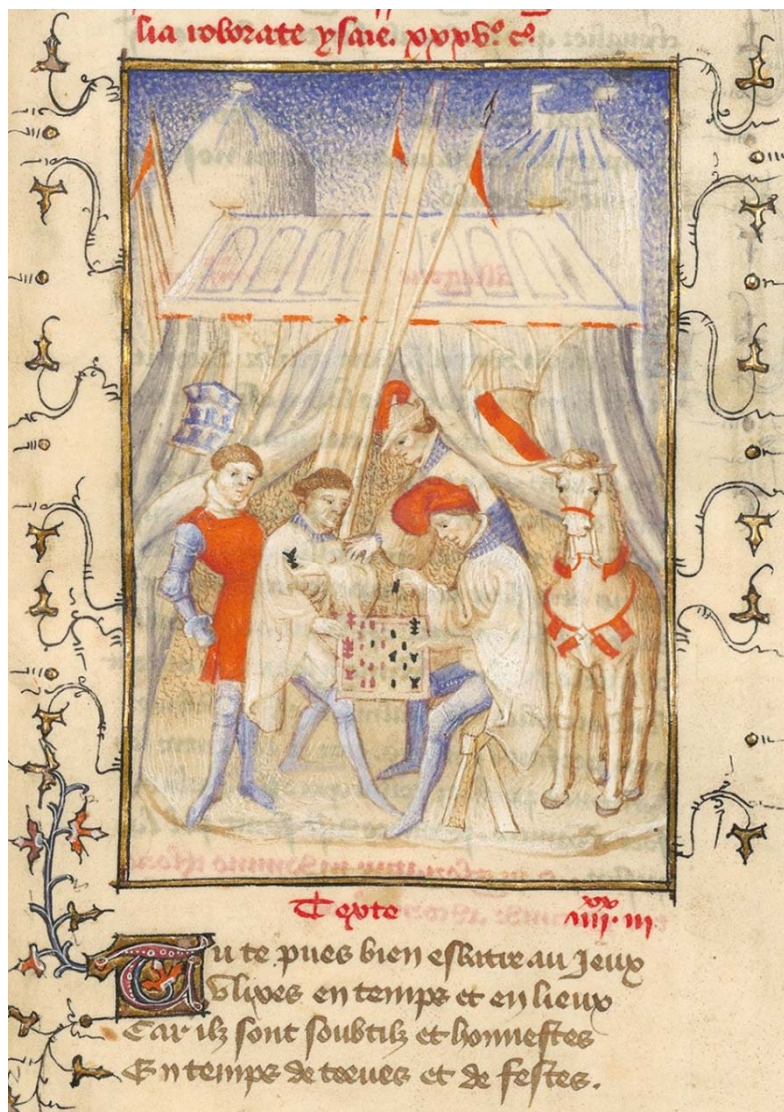 lia roborate ysaie. xxxv.º c.º
Texte iiii.xx iii.
Tu te pues bien esbatre au Jeux
Vlixes en temps et en lieux
Car ilz sont soubtilz et honnestes
En temps de treues et de festes.